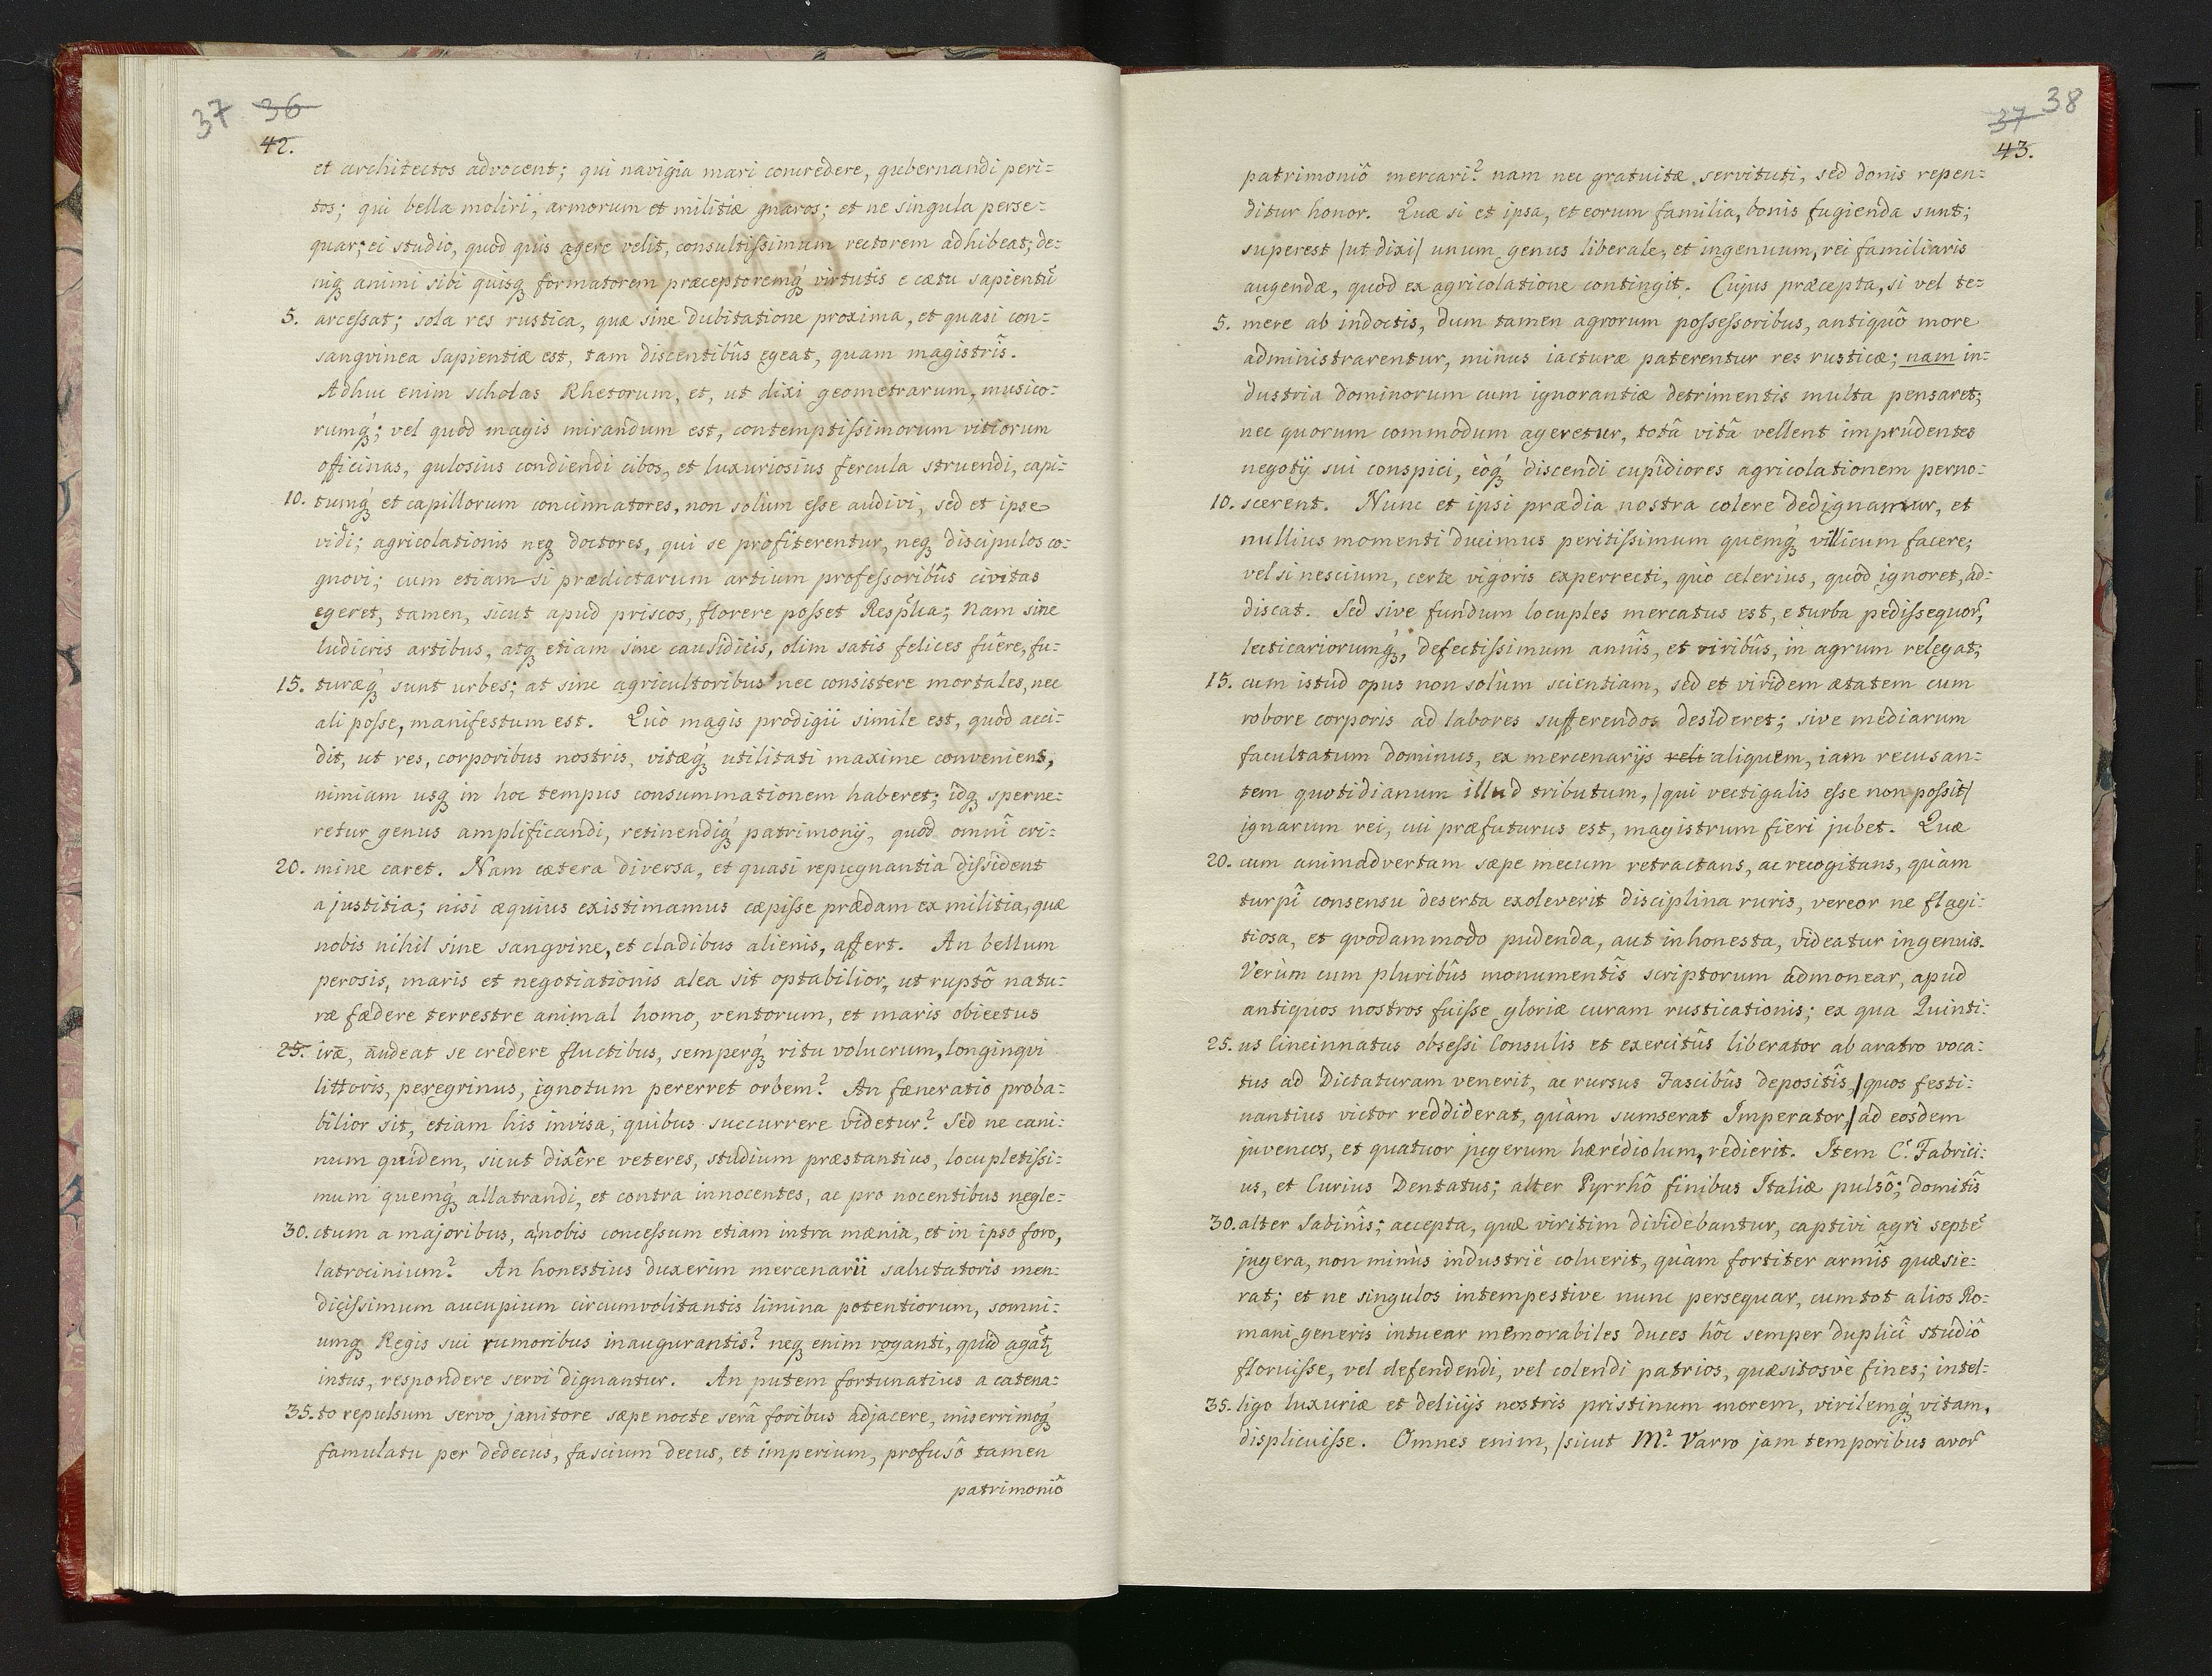 37 36
42.
et architectos advocent; qui navigia mari concredere, gubernandi peri=
tos; qui bella moliri, armorum et militiæ gnaros; et ne singula perse=
quar; ei studio, quod quis agere velit, consultissimum rectorem adhibeat; de=
niq; animi sibi quisq; formatorem præceptoremq́; virtutis e cætu sapientū
5. arcessat; sola res rustica, quæ sine dubitatione proxima, et quasi con=
sangvinea sapientiæ est, tam discentibûs egeat, quam magistrîs.
Adhuc enim scholas Rhetorum, et, ut dixi geometrarum, musico=
rumq́; vel quod magis mirandum est, contemptissimorum vitiorum
officinas, gulosius condiendi cibos, et luxuriosius fercula struendi, capi=
10. tumq́; et capillorum concinnatores, non solùm esse audivi, sed et ipse
vidi; agricolationis neq; doctores, qui se profiterentur, neq; discipulos co=
gnovi; cum etiam si prædictarum artium professoribûs civitas
egeret, tamen, sicut apud priscos, florere posset Resp̃lca; Nam sine
ludicris artibus, atq; etiam sine causidicis, olim satis felices fuêre, fu=
15. turæq́; sunt urbes; at sine agricultoribus nec consistere mortales, nec
ali posse, manifestum est. Quò magis prodigii simile est, quod acci=
dit, ut res, corporibus nostris, vitæq́; utilitati maxime conveniens,
nimiam usq; in hoc tempus consummationem haberet; idq; sperne=
retur genus amplificandi, retinendiq́; patrimonij, quod omnî cri=
20. mine caret. Nam cætera diversa, et quasi repugnantia dissident
a justitia; nisi æquius existimamus cæpisse prædam ex militia, quæ
nobis nihil sine sangvine, et cladibus alienis, affert. An bellum
perosis, maris et negotiationis alea sit optabilior, ut ruptô natu=
ræ fædere terrestre animal homo, ventorum, et maris obiectus
25. iræ, audeat se credere fluctibus, semperq́; ritu volucrum, longinqvi
littoris, peregrinus, ignotum pererret orbem? An fæneratio proba=
bilior sit, etiam his invisa, quibus succurrere videtur? Sed ne cani=
num quidem, sicut dixêre veteres, studium præstantius, locupletissi=
mum quemq́; allatrandi, et contra innocentes, ac pro nocentibus negle=
30. ctum a majoribus, a nobis concessum etiam intra mænia, et in ipso foro,
latrocinium? An honestius duxerim mercenarii salutatoris men=
dicissimum aucupium circumvolitantis limina potentiorum, somni=
umq; Regis sui rumoribus inaugurantis? neq; enim roganti, quid agat̃
intus, respondere servi dignantur. An putem fortunatius a catena=
35. to repulsum servo janitore sæpe nocte serâ foribus adjacere, miserrimoq́;
famulatu per dedecus, fascium decus, et imperium, profusô tamen
patrimoniô
37 38
43.
patrimoniô mercari? nam nec gratuitæ servituti, sed donis repen=
ditur honor. Quæ si et ipsa, et eorum familia, bonis fugienda sunt;
superest /ut dixi/ unum genus liberale, et ingenuum, rei familiaris
augendæ, quod ex agricolatione contingit. Cujus præcepta, si vel te=
5. mere ab indoctis, dum tamen agrorum possessoribus, antiquô more
administrarentur, minus iacturæ paterentur res rusticæ; nam in=
dustria dominorum cum ignorantiæ detrimentis multa pensaret;
nec quorum commodum ageretur, totâ vitâ vellent imprudentes
negotij sui conspici, eòq́; discendi cupidiores agricolationem perno=
10. scerent. Nunc et ipsi prædia nostra colere dedignamur, et
nullius momenti ducimus peritissimum quemq́; villicum facere;
vel si nescium, certe vigoris experrecti, quò celerius, quod ignoret, ad=
discat. Sed sive fundum locuples mercatus est, e turba pedissequor̃,
lecticariorumq́;, defectissimum annîs, et viribûs, in agrum relegat;
15. cum istud opus non solùm scientiam, sed et viridem ætatem cum
robore corporis ad labores sufferendos desideret; sive mediarum
facultatum dominus, ex mercenarijs reli aliquem, iam recusan=
tem quotidianum illud tributum, /qui vectigalis esse non possit/
ignarum rei, cui præfuturus est, magistrum fieri jubet. Quæ
20. cum animadvertam sæpe mecum retractans, ac recogitans, quàm
turpî consensu deserta exoleverit disciplina ruris, vereor ne flagi=
tiosa, et qvodammodo pudenda, aut inhonesta, videatur ingenuis.
Verùm cum pluribûs monumentîs scriptorum admonear, apud
antiquos nostros fuisse gloriæ curam rusticationis; ex qua Quinti=
25. us Cincinnatus obsessi Consulis et exercitûs liberator ab aratro voca=
tus ad Dictaturam venerit, ac rursus Fascibûs depositîs, /quos festi=
nantius victor reddiderat, quàm sumserat Imperator,/ ad eosdem
juvencos, et quatuor jugerum hærediolum, redierit. Item C.ˢ Fabrici=
us, et Curius Dentatus; alter Pyrrhô finibus Italiæ pulsô; domitîs
30. alter Sabinîs; accepta, quæ viritim dividebantur, captivi agri septē
jugera, non minùs industriè coluerit, quàm fortiter armîs quæsie=
rat; et ne singulos intempestive nunc persequar, cum tot alios Ro=
mani generis intuear memorabiles duces hôc semper duplicî studiô
floruisse, vel defendendi, vel colendi patrios, quæsitosvè fines; intel=
35. ligo luxuriæ et delicijs nostris pristinum morem, virilemq́; vitam,
displicuisse. Omnes enim, /sicut M.ˢ Varro jam temporibus avor̃